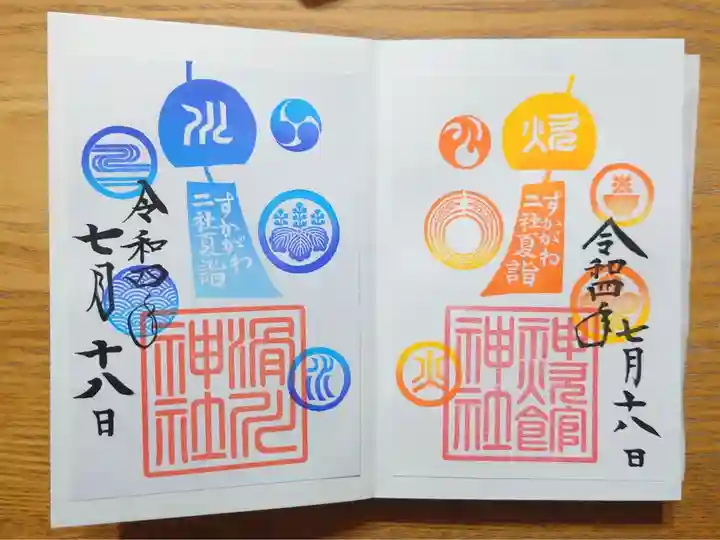 すかがわ
二社夏詣
令和四年
七月十八日
神炊館
神社
火
すかがわ
二社夏詣
令和四年
七月十八日
滑川
神社
水